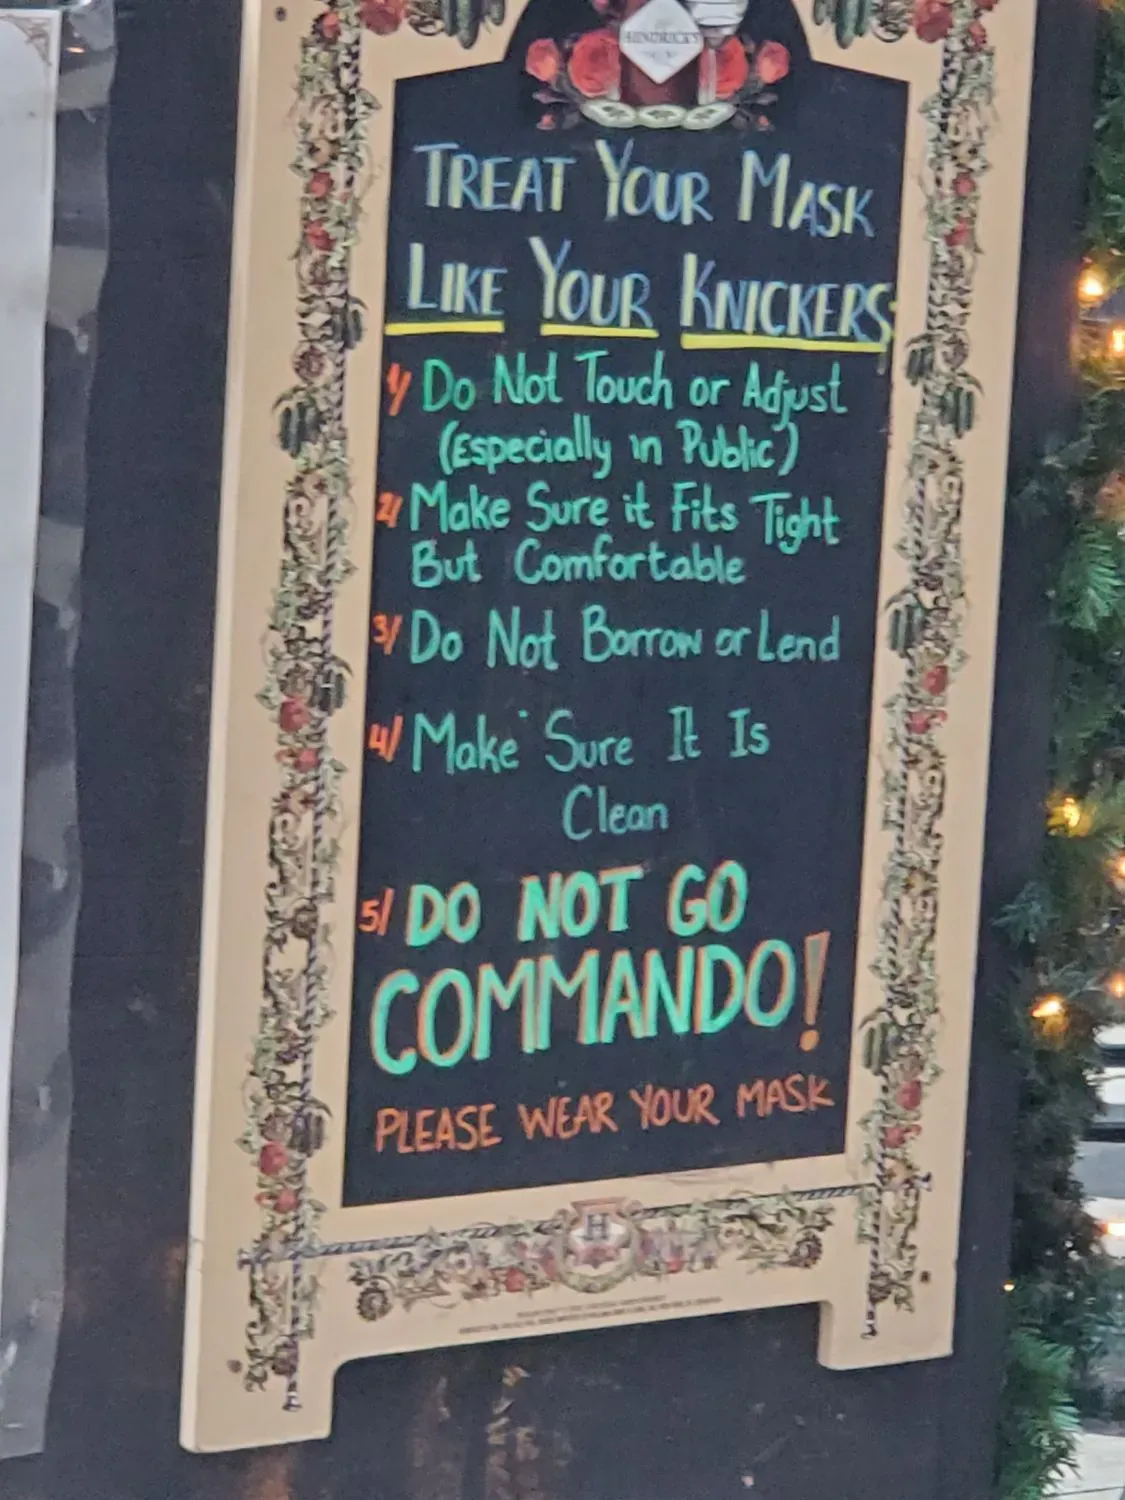 HENDRICK'S
TREAT YOUR MASK
LIKE YOUR KNICKERS
1/ Do Not Touch or Adjust
(Especially in Public)
2/ Make Sure it Fits Tight
But Comfortable
3/ Do Not Borrow or Lend
4/ Make Sure It Is
Clean
5/ DO NOT GO
COMMANDO!
PLEASE WEAR YOUR MASK
H